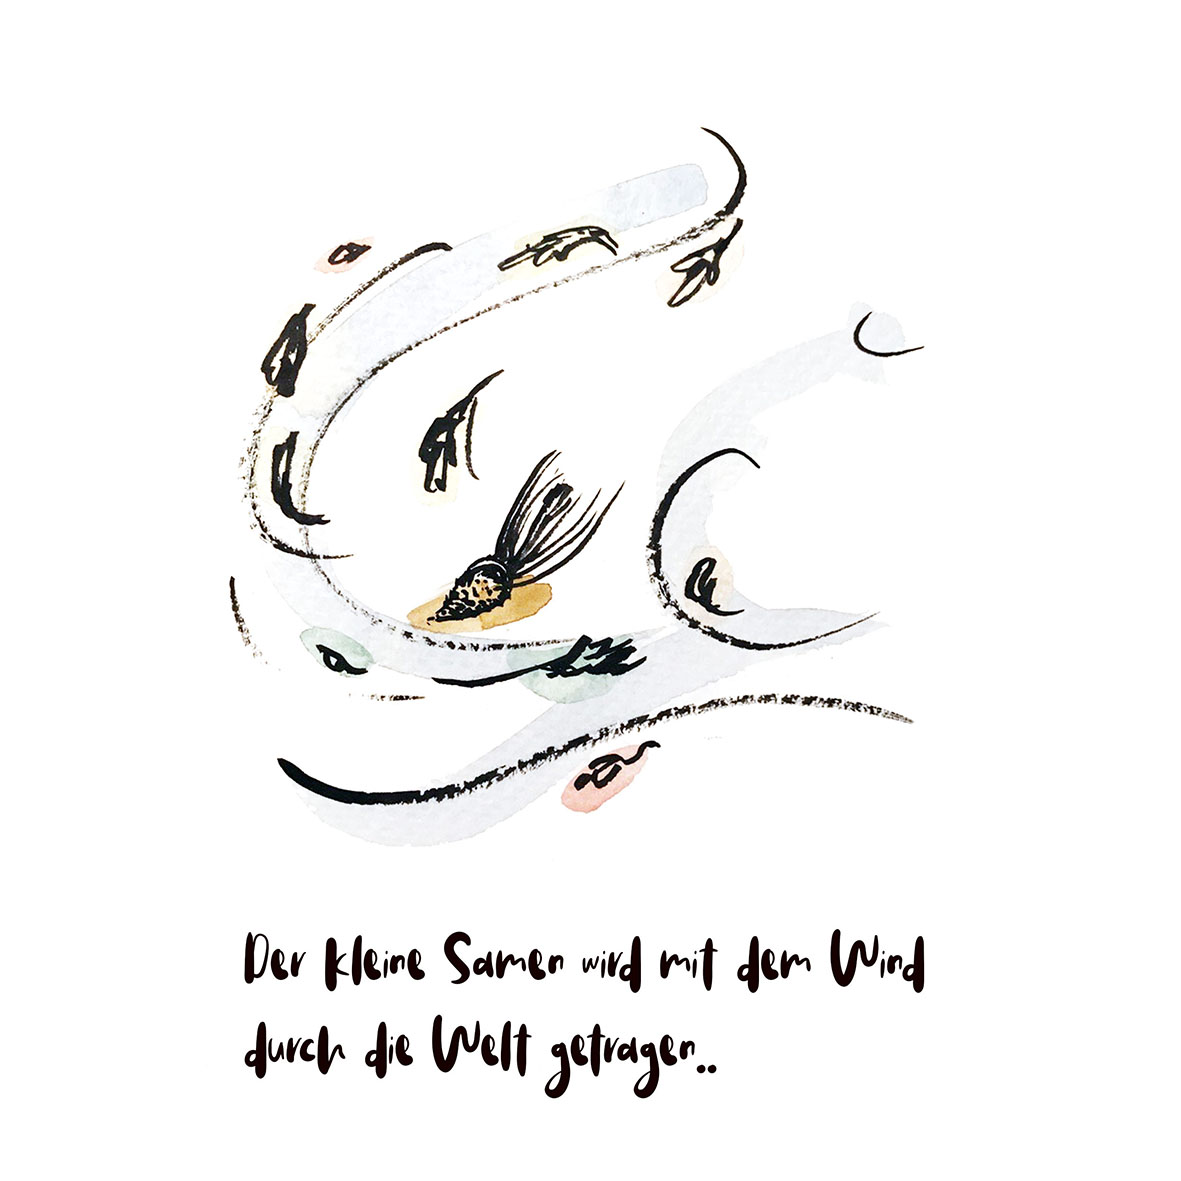 Der kleine Samen wird mit dem Wind
durch die Welt getragen..